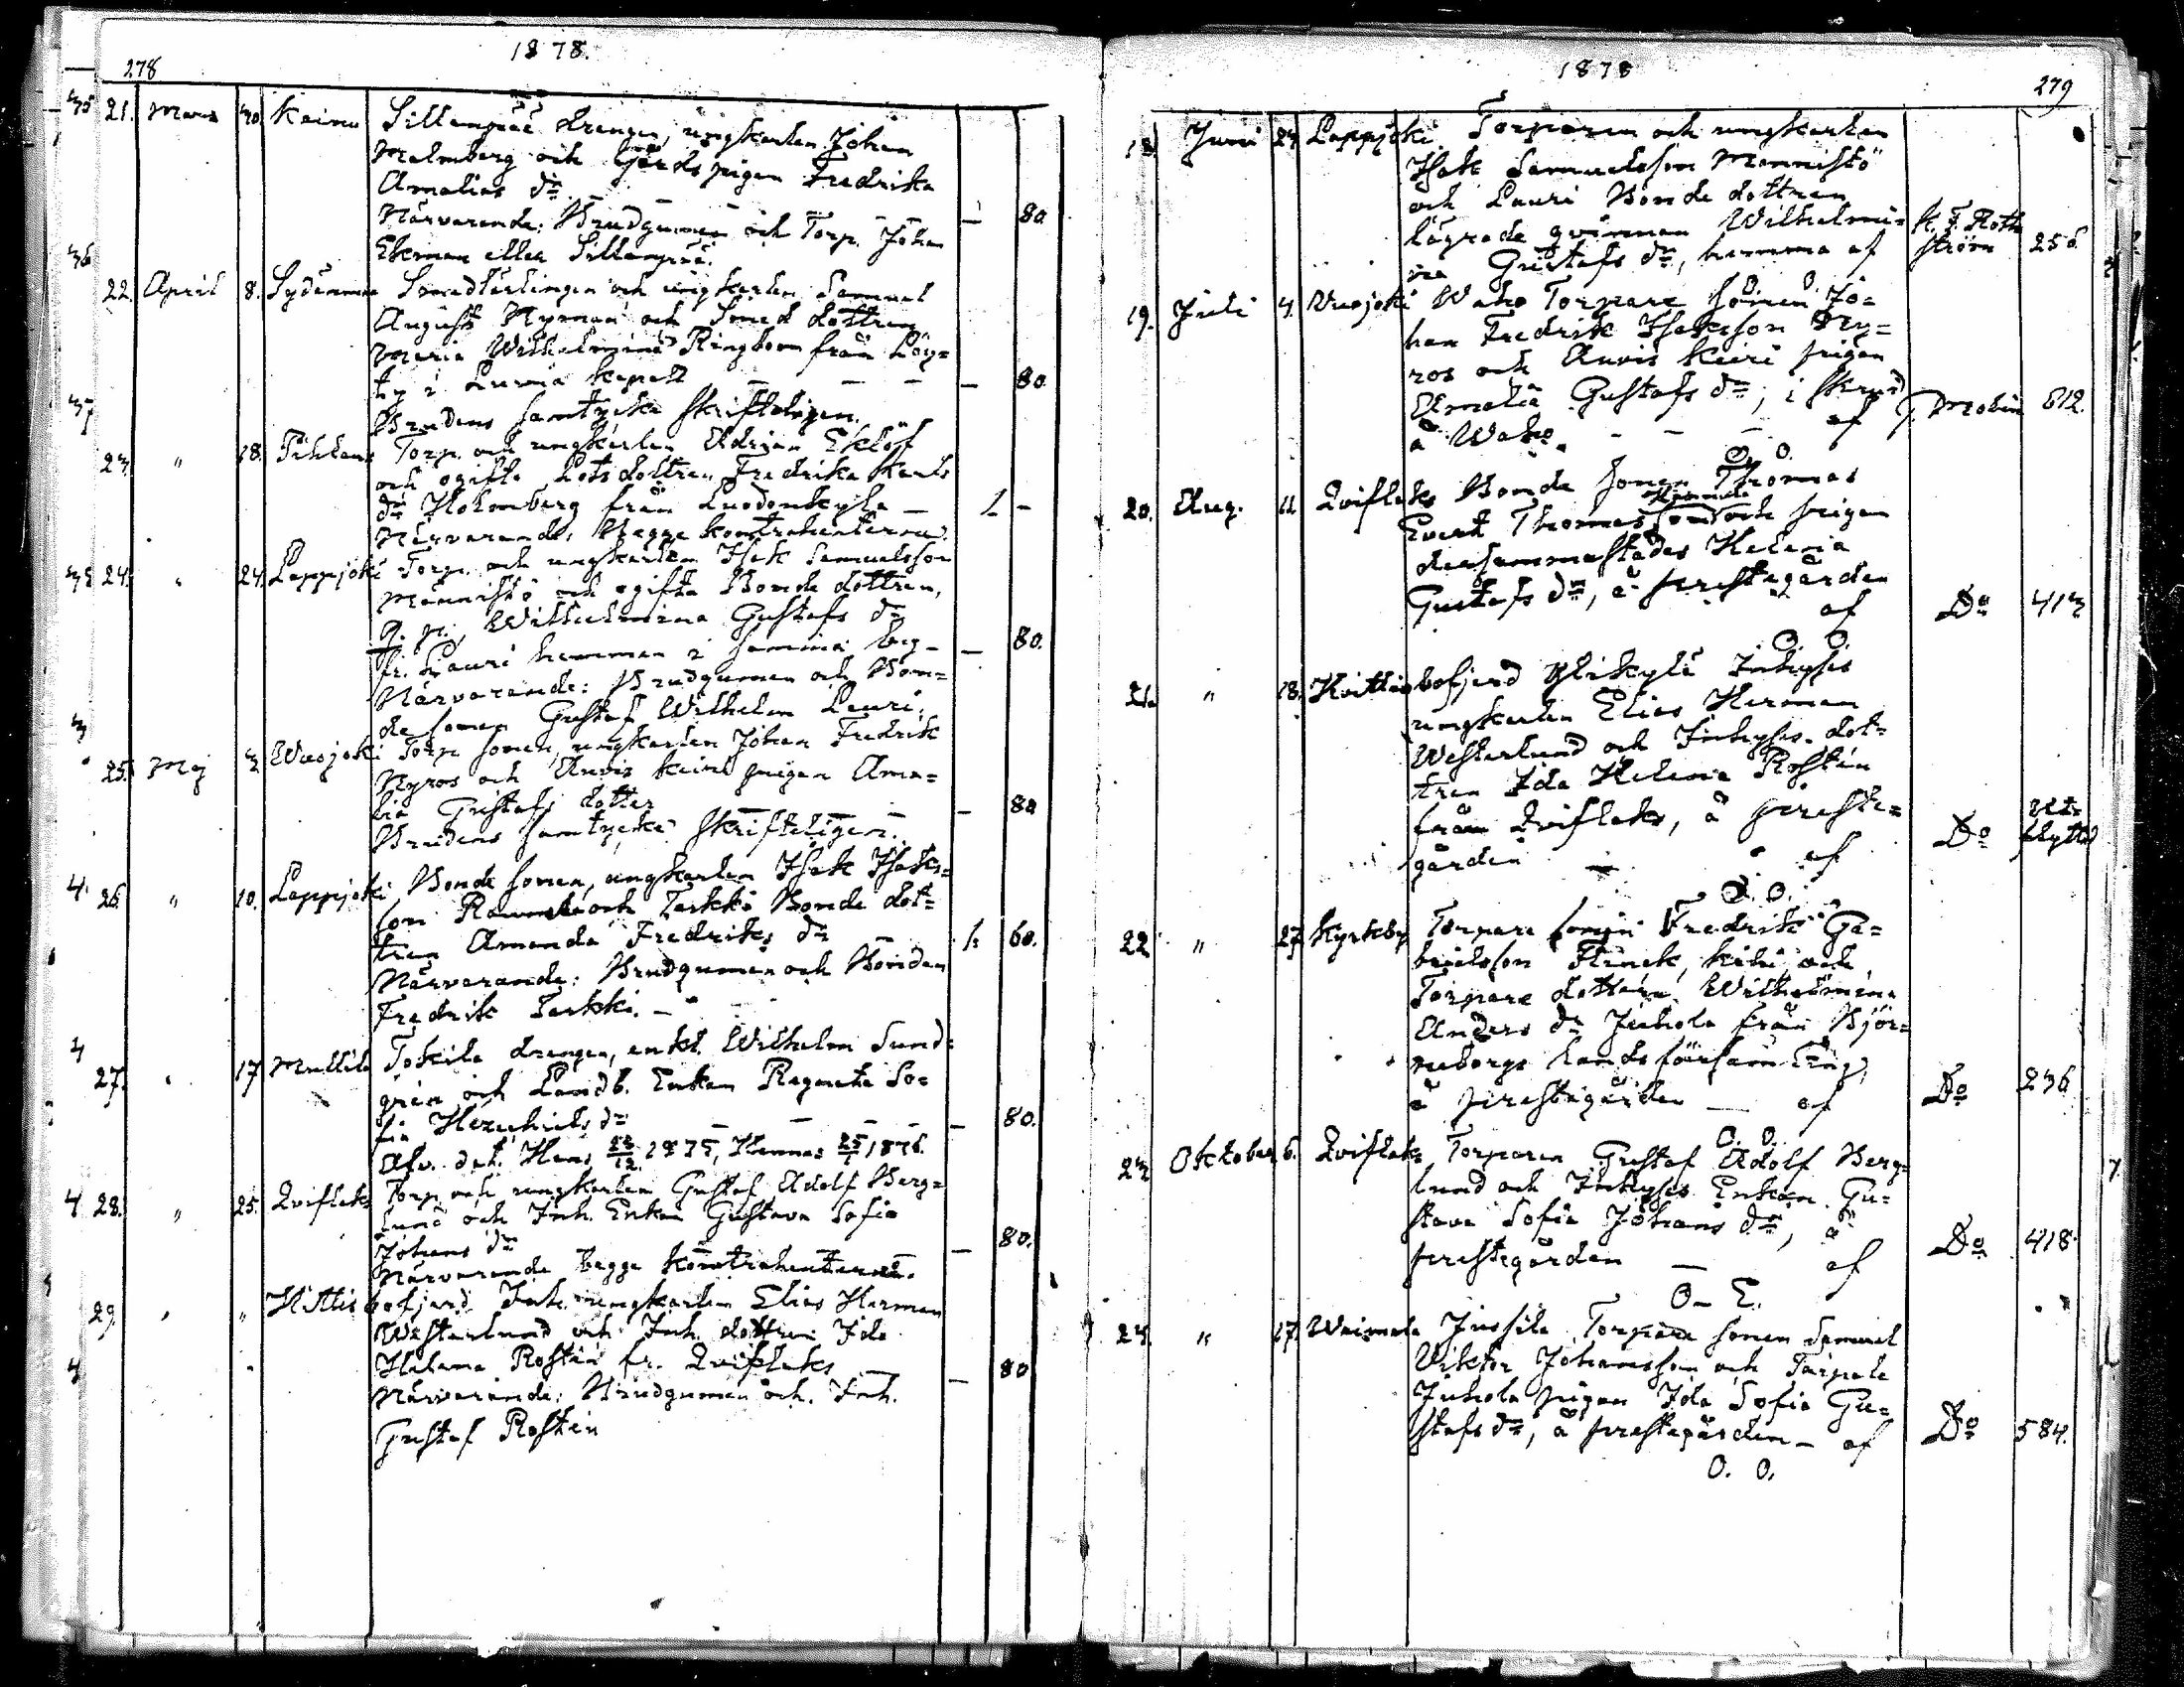 278
1878.
21. Mars 30. Keinu Sillanpää drengen, ungkarlen Johan
Malmberg och Gårds pigan Fredrika
Amalias dr
Närvarande: Brudgumen och Torp. Johan — 80
Ekman eller Sillanpää.
22. April 8. Sydänmaa Smedlärlingen och ungkarlen Samuel
August Nyman och Smed dottren
Maria Wilhelmina Ringbom från Löy-
ty i Luvia kapell — — — — 80.
Brudens samtycke skriftligen.
23. " 18. Pihlaus Torp. och ungkarlen Adrian Eklöf
och ogifta Lots dottren Fredrika Karls
dr Holmberg från Luodonkylä — 1 —
Närvarande: Begge kontrahenterna.
24. " 24. Lappjoki Torp. och ungkarlen Isak Samuelsson
Männistö och ogifta Bonde dottren,
q. p. Wilhelmina Gustafs dr
fr. Lauri hemman i samma by — — 80.
Närvarande: Brudgumen och Bon-
de sonen Gustaf Wilhelm Lauri.
25. Maj 3 Wuojoki Torp. sonen, ungkarlen Johan Fredrik
Nyroos och Anvis Keiri pigan Ama-
lia Gustafs dotter — 80
Brudens samtycke skriftligen.
26. " 10. Lappjoki Bonde sonen, ungkarlen Isak Isaks-
son och Tarkki Bonde dot-
tren Amanda Fredriks dr 1. 60.
Närvarande: Brudgumen och Bonden
Fredrik Tarkki. —
27. " 17 Mullila Tokila drengen, enkl. Wilhelm Sund-
gren och Landb. Enkan Regneta So-
fia Henriks dr — — — — 80.
Afv. det. Hans 23/12 1875, Hennes 25/1 1876.
28. " 25. Qviflaks Torp. och ungkarlen Gustaf Adolf Berg-
lund och Inh. Enkan Gustava Sofia
Johans dr — 80.
Närvarande begge kontrahenterna.
29. " " Hvittisbofjerd Inh. ungkarlen Elias Herman
Westerlund och Inh. dottren Ida
Helena Rostén fr. Qviflaks — — 80
Närvarande: Brudgumen och Inh.
Gustaf Rostén
1878
279
18. Juni 24 Lappjoki Torparen och ungkarlen
Isak Samuelsson Mannistö
och Lauri Bonde dottren
lägrade qvinnan Wilhelmi- K. F. Roth
na Gustafs dr, hemma af ström 256.
19. Juli 4. Wuojoki Waho Torpare sonen Jo-
han Fredrik Isaksson Ny-
ros och Anvis Keiri pigan
Amalia Gustafs dr, i
å Waho. — — — af J. Molin 612.
O. O.
20. Aug. 11. Qviflaks Bonde sonen Thomas
Evert Thomasson och pigan
dersammastädes Helena
Gustafs dr, å prestegården
af Do 413
O. O.
21. " 18. Hvittisbofjerd Ylikylä Inhyses
ungkarlen Elias Herman
Westerlund och Inhyses dot-
tren Ida Helena Rostén
från Qviflaks, å preste-
gården — af Do Utflyttad
O. O.
22 " 27 Kyrkby Torpare sonen Fredrik Ga-
brielsson Flinck, och
Torpare dottren Wilhelmina
Anders dr Juhola från Björ-
neborgs landsförsamling,
å prestegården — af Do 236
O. O.
23 Oktober 6. Qviflaks Torparen Gustaf Adolf Berg-
lund och Inhyses Enkan Gu-
stava Sofia Johans dr, å
prestegården — af Do 418.
O— E.
24. " 17. Woimala Jussila Torpare sonen Samuel
Viktor Johansson och
Juhola pigan Ida Sofia Gu-
stafs dr, å prestegården — af Do 584.
O. O.